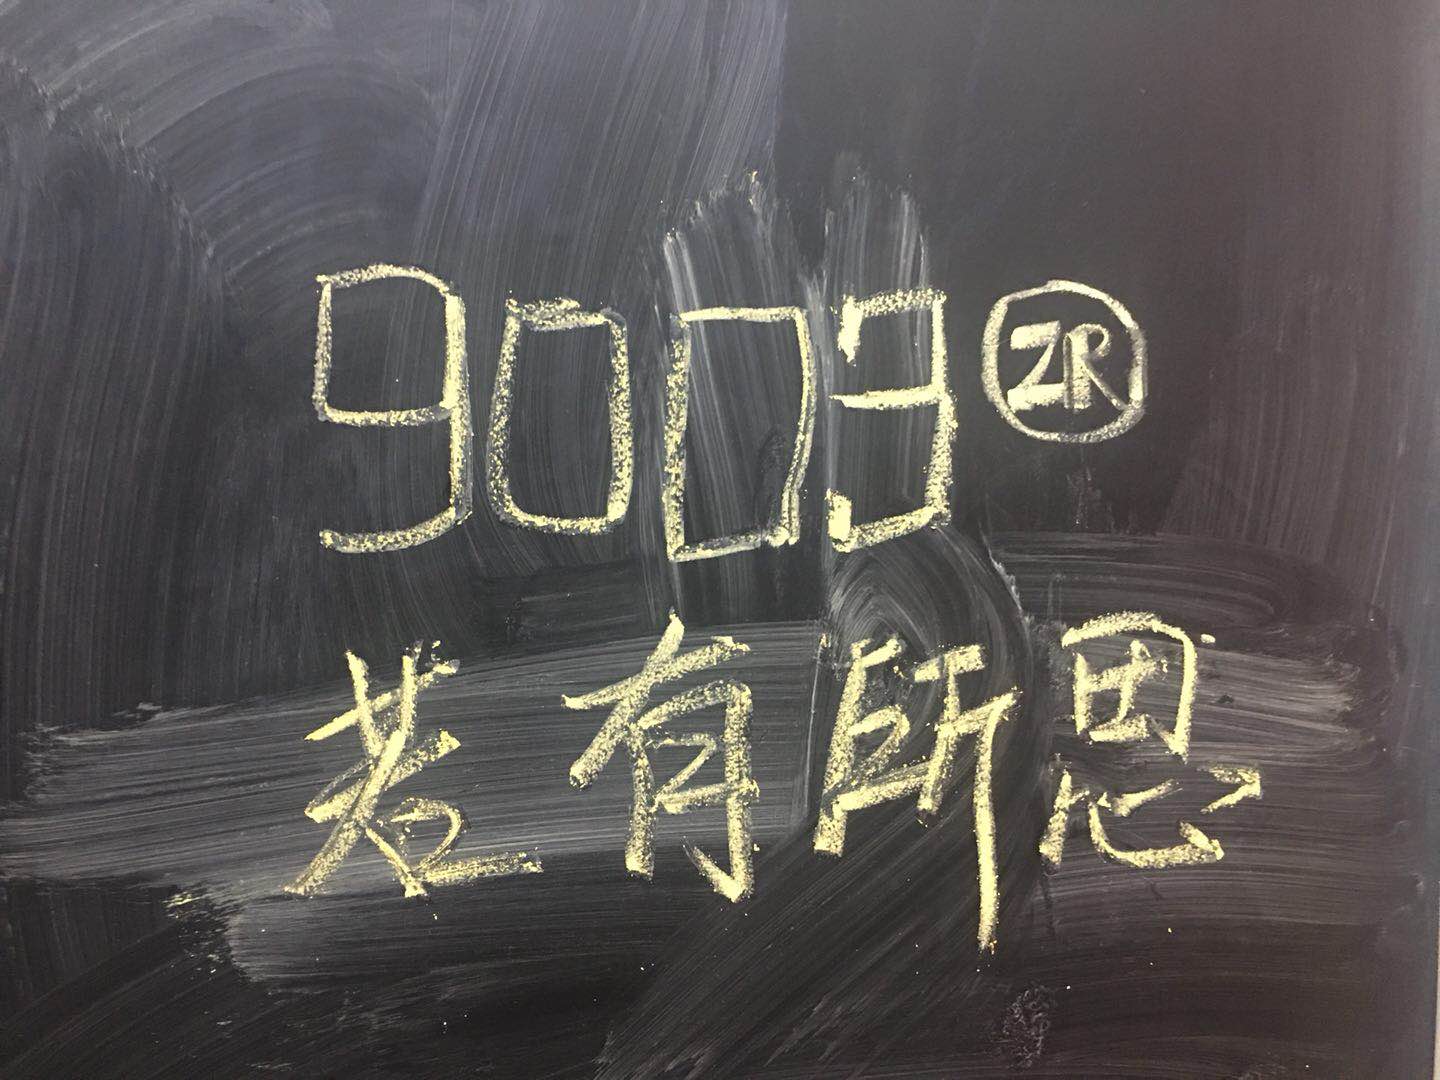 9003 ZR
若有所思